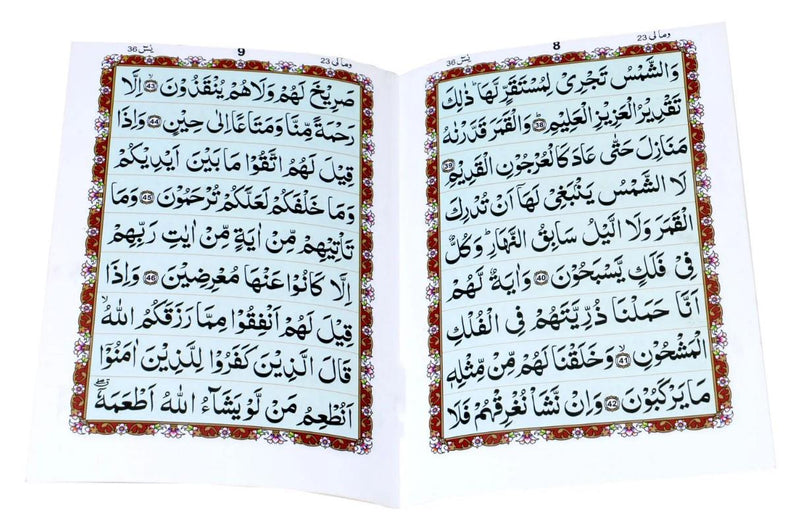 36 يٰسٓ
8
وما لی 23
وَالشَّمْسُ تَجْرِىْ لِمُسْتَقَرٍّ لَّهَا ؕ ذٰلِكَ
تَقْدِيْرُ الْعَزِيْزِ الْعَلِيْمِ 38 وَالْقَمَرَ قَدَّرْنٰهُ
مَنَازِلَ حَتّٰى عَادَ كَالْعُرْجُوْنِ الْقَدِيْمِ 39
لَا الشَّمْسُ يَنْۢبَغِىْ لَهَاۤ اَنْ تُدْرِكَ
الْقَمَرَ وَلَا الَّيْلُ سَابِقُ النَّهَارِ ؕ وَكُلٌّ
فِىْ فَلَكٍ يَّسْبَحُوْنَ 40 وَاٰيَةٌ لَّهُمْ
اَنَّا حَمَلْنَا ذُرِّيَّتَهُمْ فِى الْفُلْكِ
الْمَشْحُوْنِ 41 وَخَلَقْنَا لَهُمْ مِّنْ مِّثْلِهٖ
مَا يَرْكَبُوْنَ 42 وَاِنْ نَّشَاْ نُغْرِقْهُمْ فَلَا
36 يٰسٓ
9
وما لی 23
صَرِيْخَ لَهُمْ وَلَا هُمْ يُنْقَذُوْنَ 43 اِلَّا
رَحْمَةً مِّنَّا وَمَتَاعًا اِلٰى حِيْنٍ 44 وَاِذَا
قِيْلَ لَهُمُ اتَّقُوْا مَا بَيْنَ اَيْدِيْكُمْ
وَمَا خَلْفَكُمْ لَعَلَّكُمْ تُرْحَمُوْنَ 45 وَمَا
تَاْتِيْهِمْ مِّنْ اٰيَةٍ مِّنْ اٰيٰتِ رَبِّهِمْ
اِلَّا كَانُوْا عَنْهَا مُعْرِضِيْنَ 46 وَاِذَا
قِيْلَ لَهُمْ اَنْفِقُوْا مِمَّا رَزَقَكُمُ اللّٰهُ ۙ
قَالَ الَّذِيْنَ كَفَرُوْا لِلَّذِيْنَ اٰمَنُوْۤا
اَنُطْعِمُ مَنْ لَّوْ يَشَآءُ اللّٰهُ اَطْعَمَهٗۤ